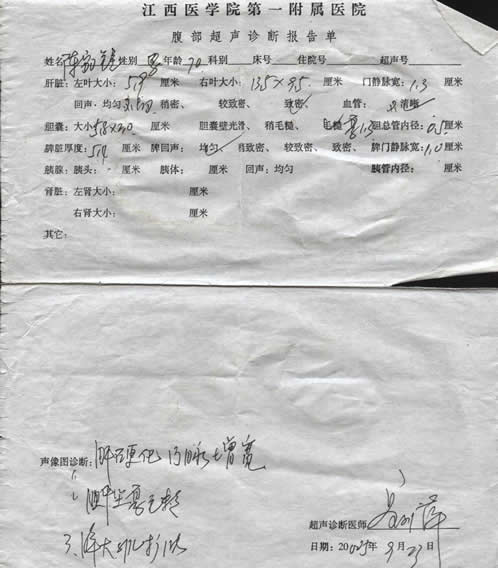 江西医学院第一附属医院
腹部超声诊断报告单
姓名 性别 男 年龄 70 科别 床号 住院号 超声号
肝脏: 左叶大小: 厘米 右叶大小: 135×95 厘米 门静脉宽: 1.3 厘米
回声: 均匀 稍密、 较致密、 致密 血管: 清晰
胆囊: 大小 厘米 胆囊壁光滑、 稍毛糙、 毛糙 胆总管内径: 0.5 厘米
脾脏厚度: 厘米 脾回声: 均匀 稍致密、 较致密、 致密、 脾门静脉宽: 1.0 厘米
胰腺: 胰头: 厘米 胰体: 厘米 回声: 均匀 胰管内径: 厘米
肾脏: 左肾大小: 厘米
右肾大小: 厘米
其它:
声像图诊断: 肝硬化 门脉增宽
3、脾大
超声诊断医师:
日期: 200 年 9 月 23 日